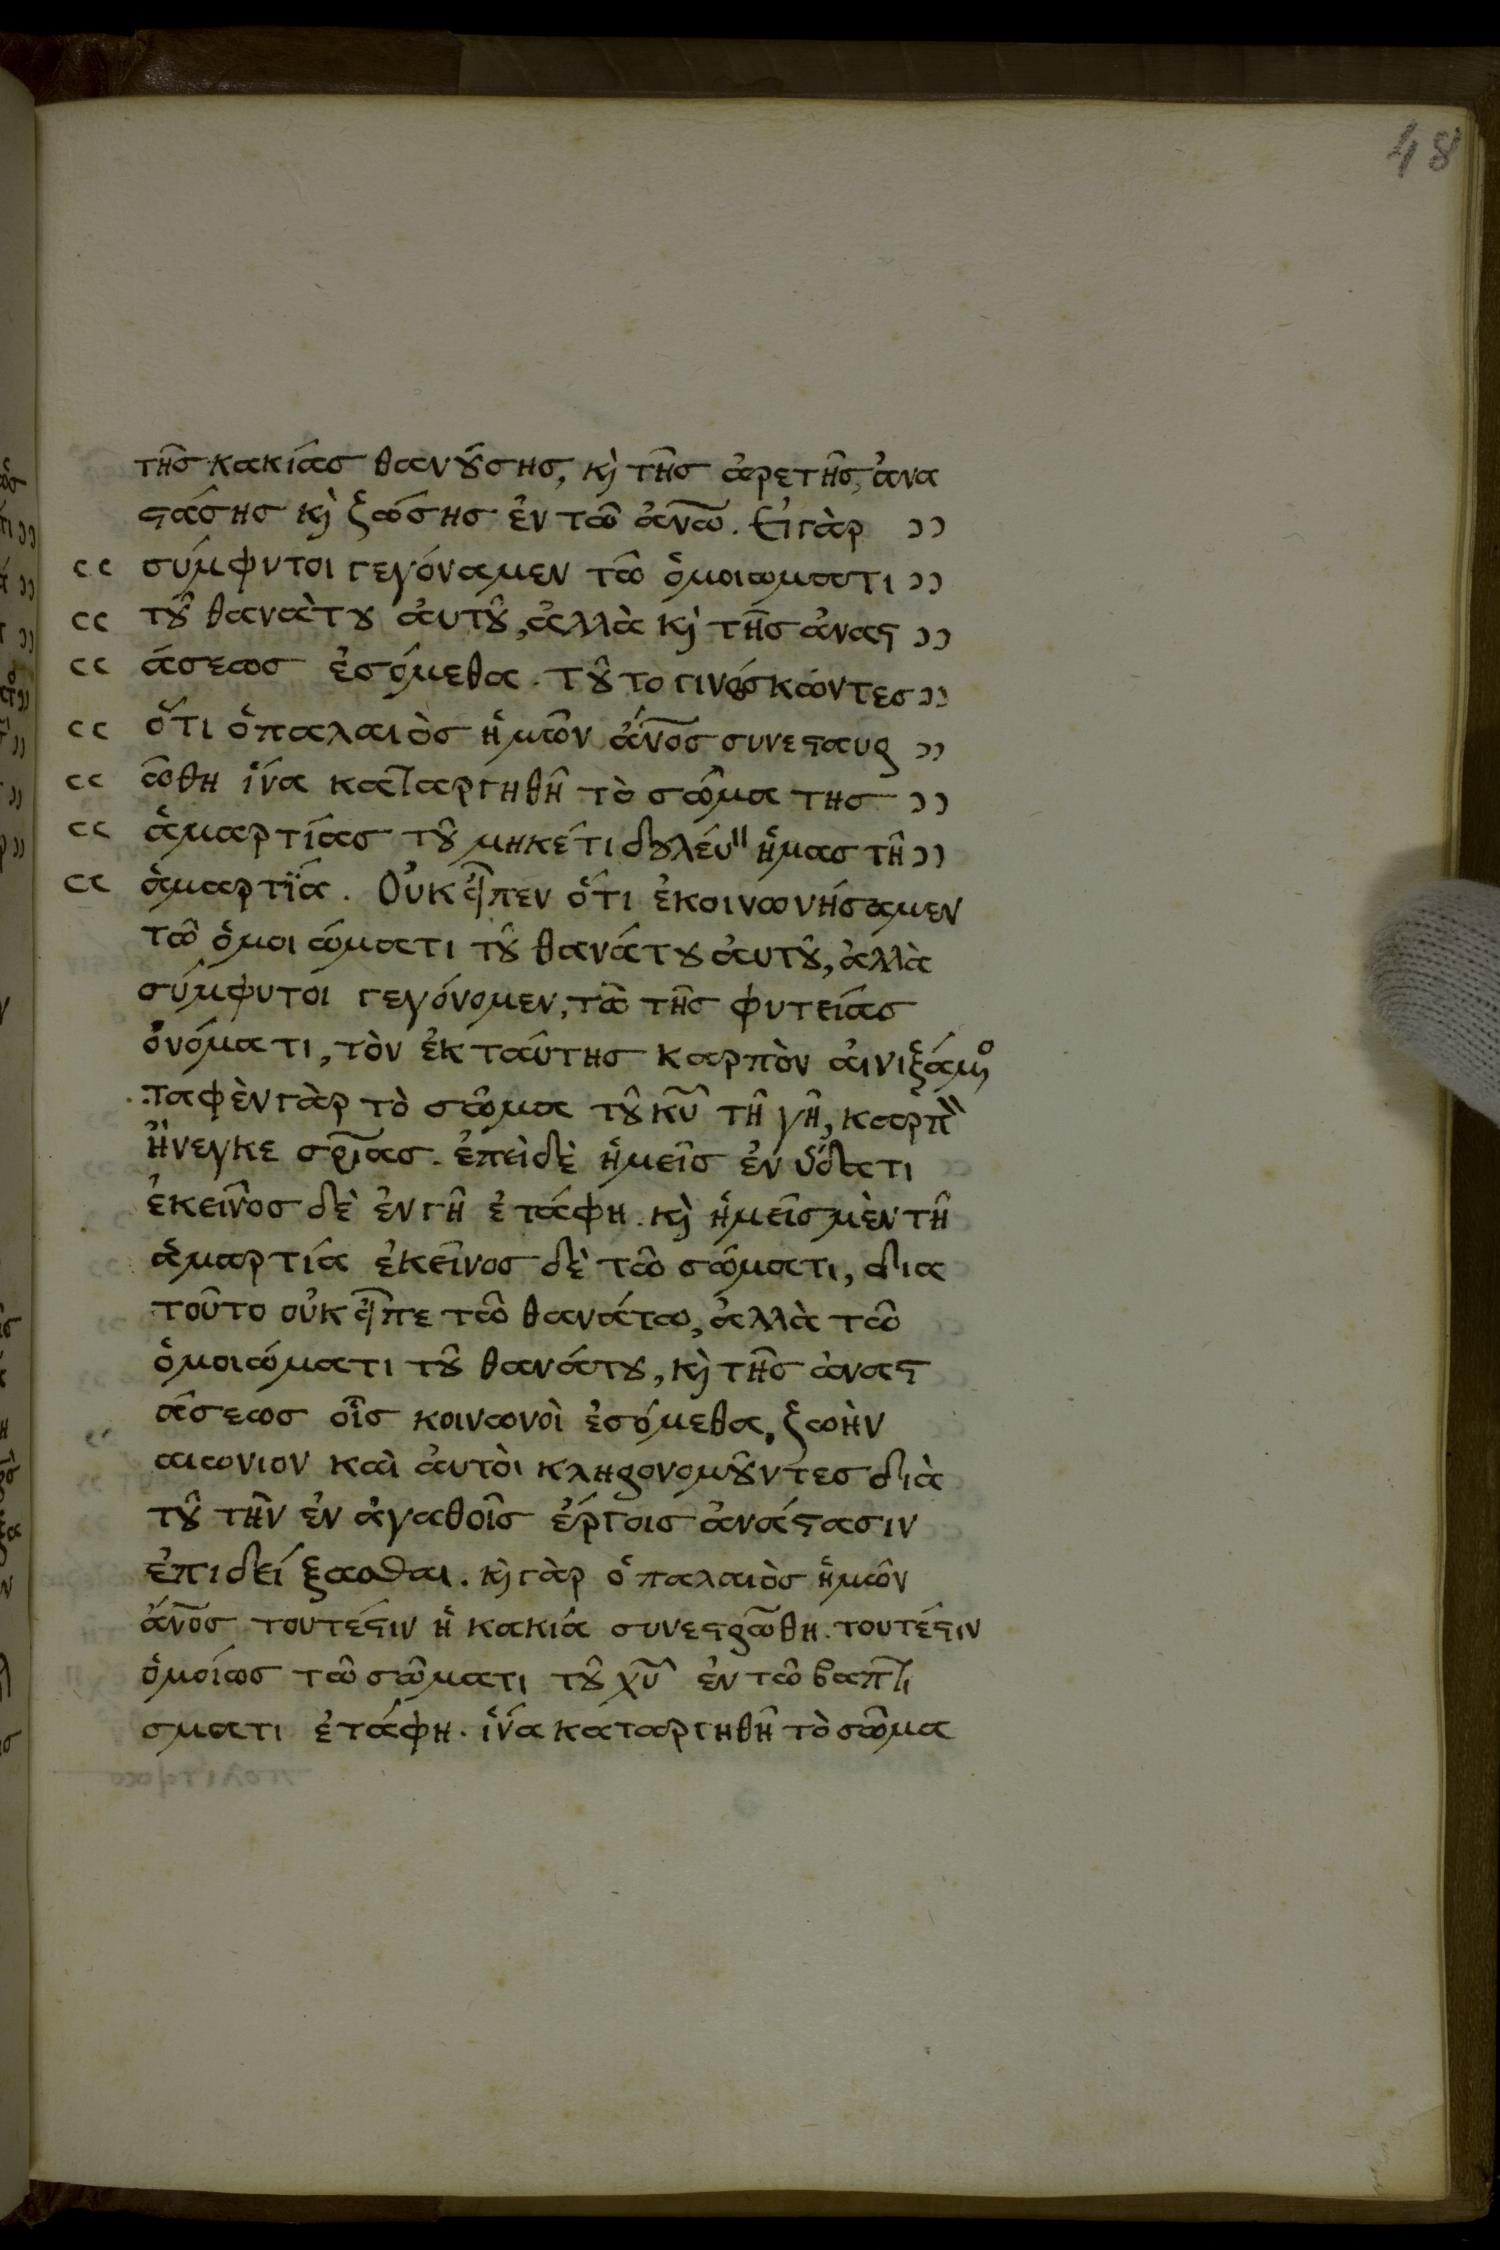 48
τῆς κακίας θανȣ́σης, κὶ τῆς ἀρετῆς, ἀνα
ϛάσης κὶ ζώσης ἐν τῶ ἀνω̅. Εἰ γὰρ ))
(( σύμφυτοι γεγόναμεν τῶ ὁμοιωματι ))
(( τȣ͂ θανὰτȣ ἀυτȣ͂, ἀλλὰ κὶ τῆς ἀναϛ ))
(( άσεως ἐσόμεθα. τȣ͂το γινώσκωντες ))
(( ὅτι ὁ παλαιὸς ἡμῶν ἄνο̅ς συνεϛαυρ ))
(( ώθη ἵνα καταργηθῆ τὸ σῶμα της ))
(( ἁμαρτίας τȣ͂ μηκέτι δȣλέυ" ἡμας τῆ ))
(( ἁμαρτία. Οὐκ εἶπεν ὅτι ἐκοινωνήσαμεν
τῶ ὁμοιώματι τȣ͂ θανάτȣ ἀυτȣ͂, ἀλλὰ
σύμφυτοι γεγόνομεν, τῶ τῆς φυτείας
ὀνόματι, τὸν ἐκ ταύτης καρπὸν αἰνιξάμο
Ταφὲν γὰρ τὸ σῶμα τȣ͂ κυ̅ τῆ γῆ, καρπ̀̀
ἤνεγκε σρι̅ας. ἐπὲιδὲ ἡμεῖς ἐν ὕδατι
ἐκεῖνος δὲ ἐν γῆ ἐτάφη. κὶ ἡμεῖς μὲν τῆ
ἁμαρτία ἐκεῖνος δὲ τῶ σώματι, δια
τοῦτο οὐκ εἶπε τῶ θανάτω, ἀλλὰ τῶ
ὁμοιώματι τȣ͂ θανάτȣ, κὶ τῆς ἀναϛ
άσεως οἷς κοινωνοὶ ἐσόμεθα, ζωὴν
αιωνιον καὶ ἀυτὸι κληρονομȣ͂ντες διὰ
τȣ͂ τὴν ἐν ἀγαθοῖς ἔργοις ἀνάϛασιν
ἐπιδείξασθαι. κὶ γὰρ ὁ παλαιὸς ἡμῶν
ἄνο̅ς τουτέϛιν ἡ κακιά συνεϛρω̅θη. τουτέϛιν
ὁμοίως τῶ σῶματι τȣ͂ χυ̅ ἐν τῶ βαπτι
σματι ἐτάφη. ἵνα καταργηθῆ τὸ σῶμα